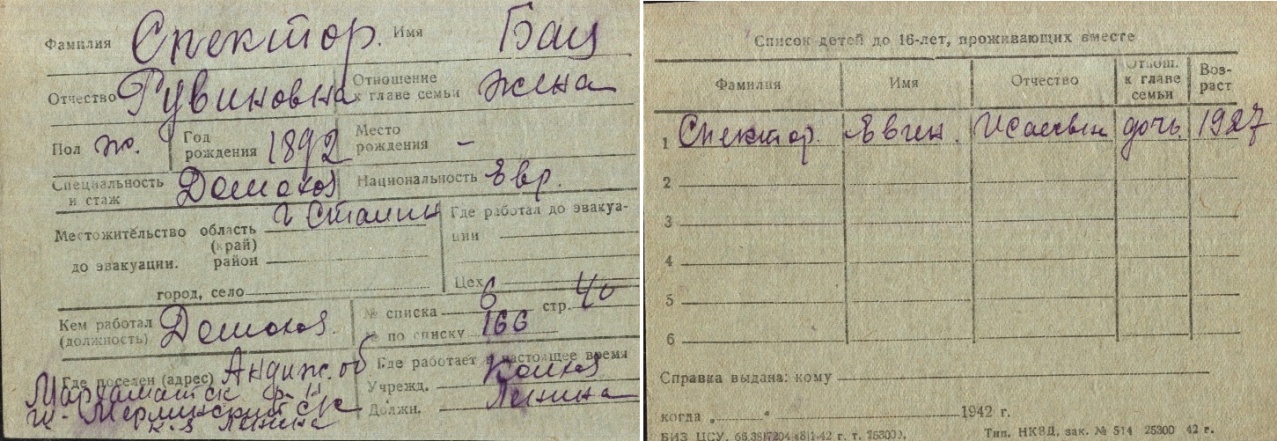 Фамилия Спектор. Имя Бац
Отчество Рувиновна Отношение к главе семьи жена
Пол ж. Год рождения 1892 Место рождения –
Специальность и стаж Домохоз Национальность Евр.
Местожительство до эвакуации. область (край) г Сталин
район
город, село
Где работал до эвакуации
Цех
Кем работал (должность) Домохоз.
№ списка 6 стр. 40
№ по списку 166
Где поселен (адрес) Андиж. об
Мархаматск р-н
к-з Ленина
Где работает в настоящее время
Учрежд. Колхоз
Должн. Ленина
Список детей до 16-лет, проживающих вместе
Фамилия Имя Отчество Отнош. к главе семьи Возраст
1 Спектор. Евген. Исаевна дочь. 1927
2
3
4
5
6
Справка выдана: кому
когда „ " 1942 г.
БИЗ ЦСУ. Тип. НКВД, зак. № 514 25300 42 г.